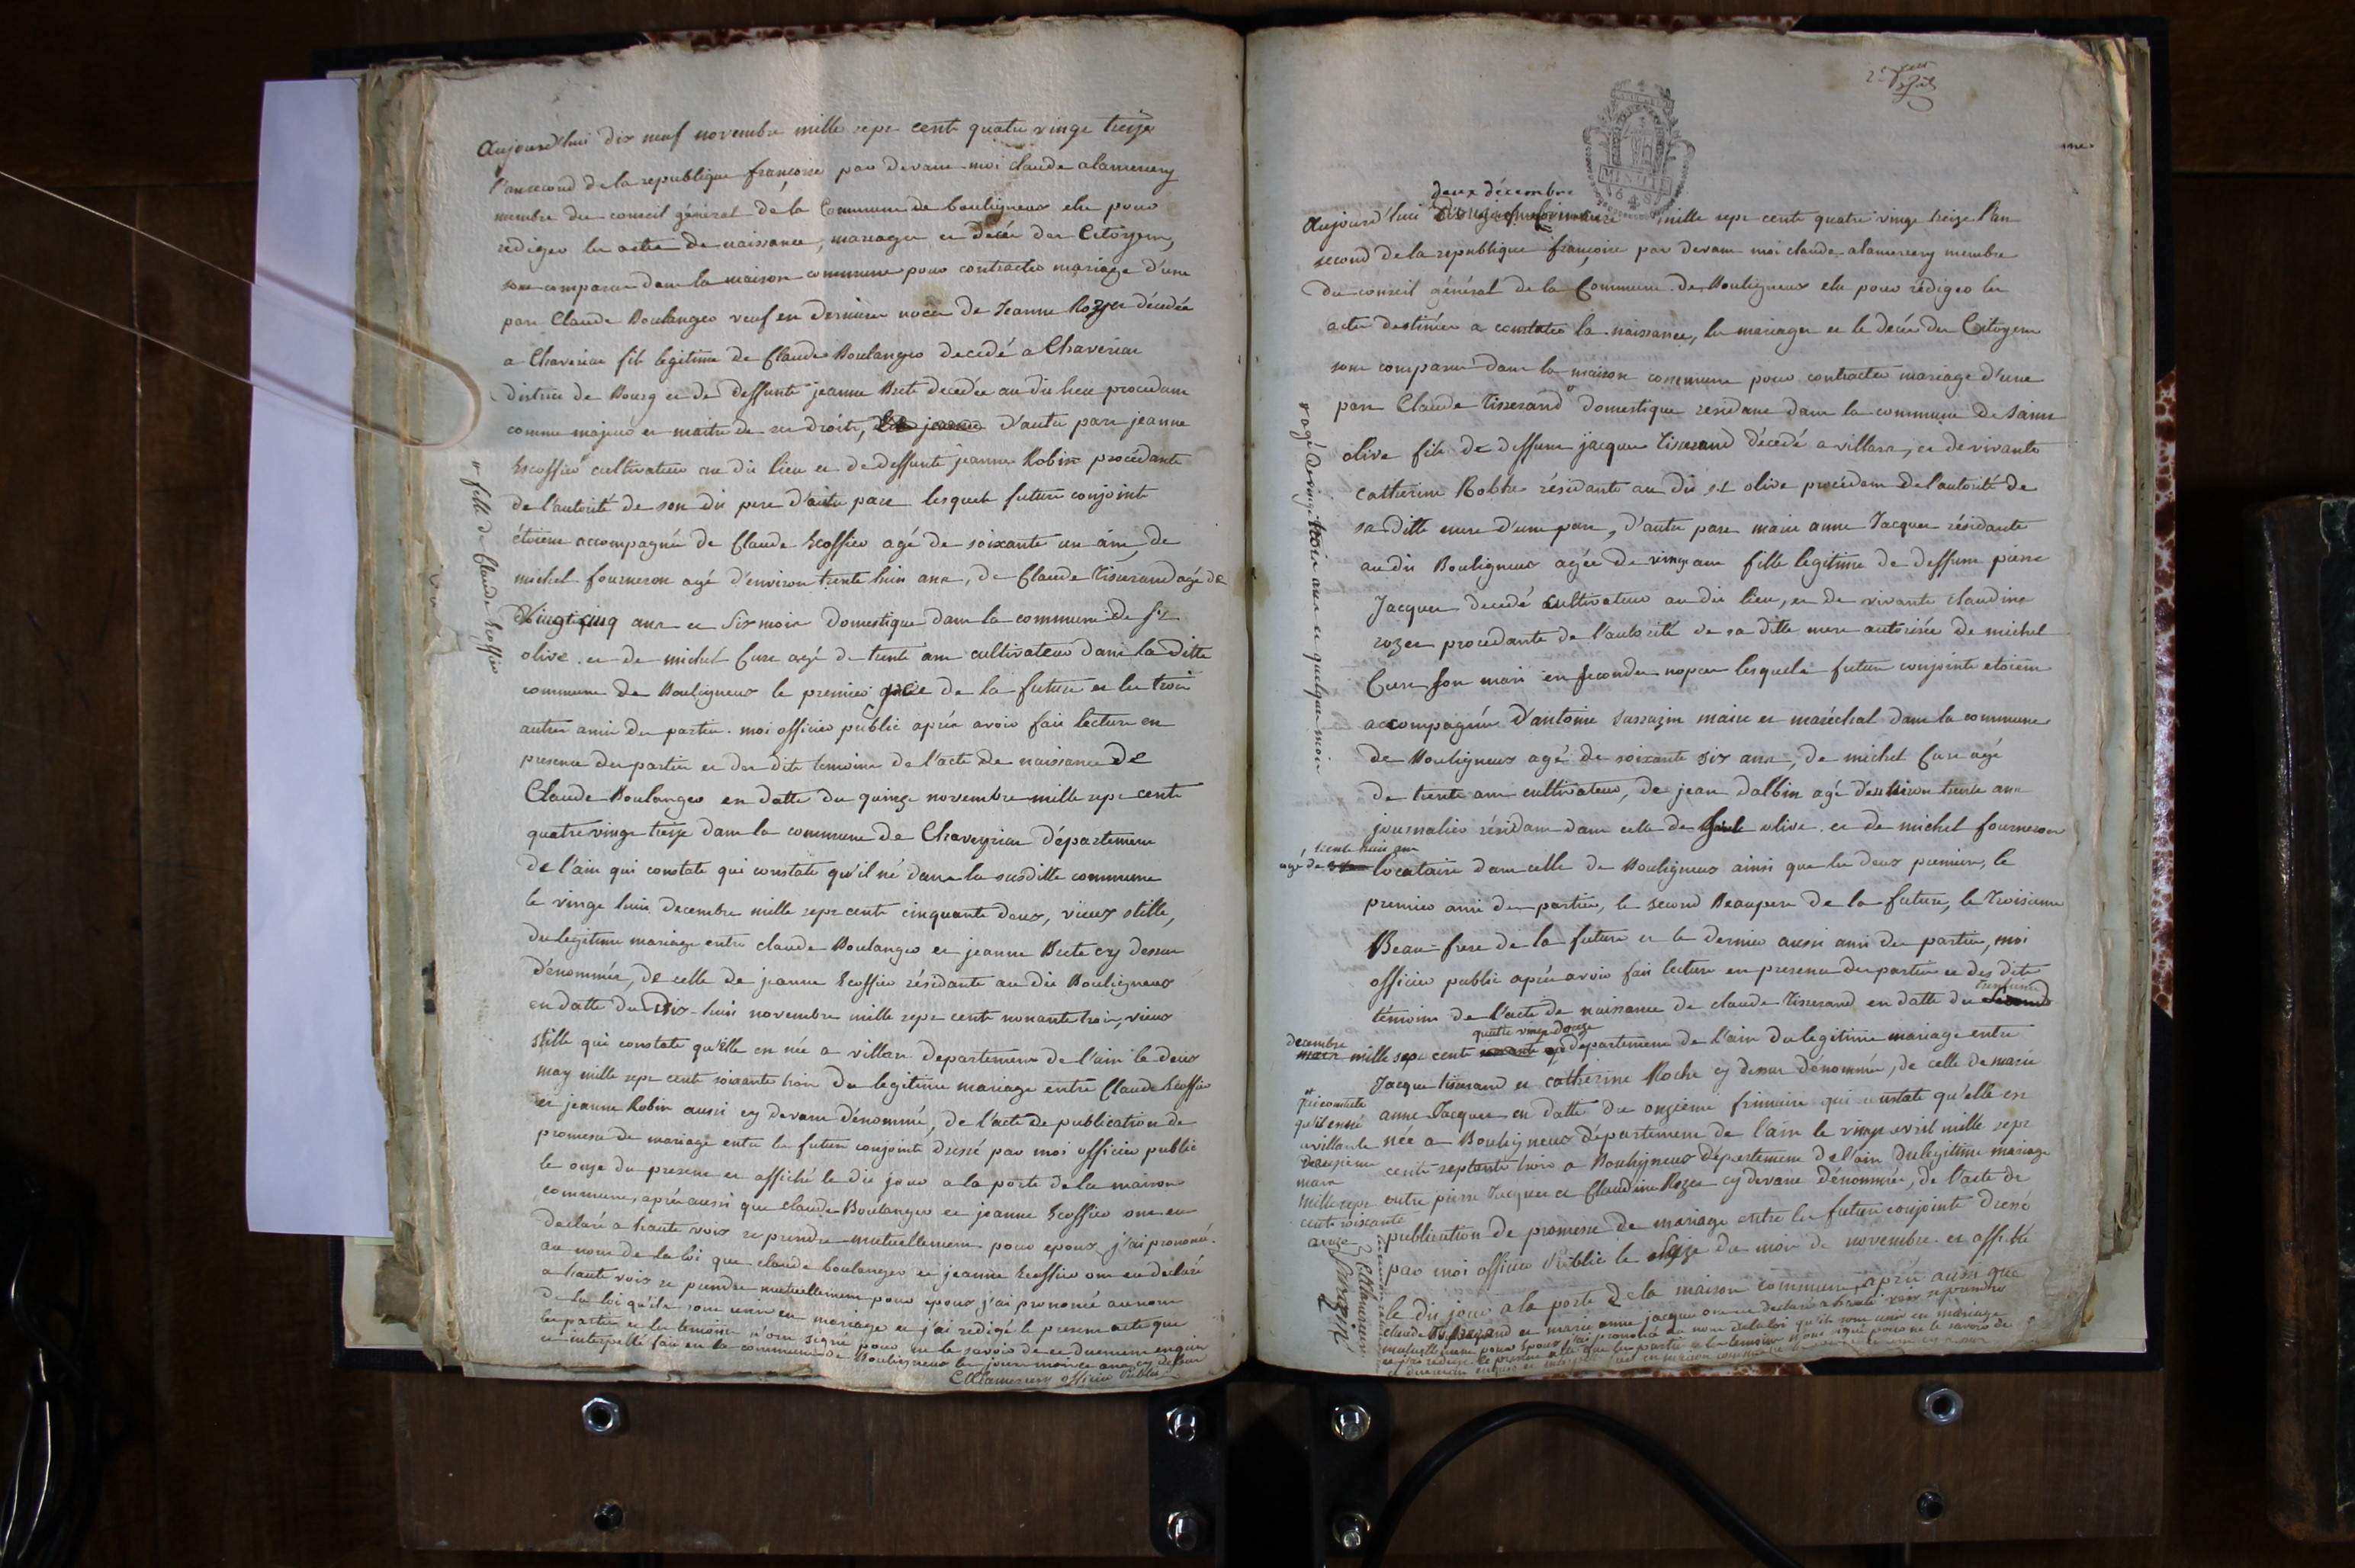 Aujourd'hui dix neuf novembre mille sept cent quatre vingt treize
l'an second de la republique françoise par devant moi claude alamercery
membre du conseil général de la Commune de bouligneux elu pour
rédiger les actes de naissance, mariages et décés des Citoyens,
sont comparus dans la maison commune pour contracter mariage d'une
part Claude Boulanger veuf en derniere noces de Jeanne Rozier décédée
a Chaveriat fils legitime de Claude Boulanger decedé a Chaveriat
district de Bourg et de deffunte jeanne Brete decedée au dit lieu procedant
comme majeur et maitre de ses droits, d'autre part jeanne
Escoffier cultivateur au dit lieu et de deffunte jeanne Robin procédante
de l'autorité de son dit pere d'autre part lesquels futurs conjoints
étoient accompagnés de Claude Escoffier agé de soixante un ans, de
michel fourneron agé d'environ trente huit ans, de Claude Tisserand agé de
vingt cinq ans et six mois domestique dans la commune de St
olive et de michel Cure agé de trente ans cultivateur dans la ditte
commune de Bouligneux le premier pere de la future et les trois
autres amis des parties. moi officier public après avoir fait lecture en
presence des parties et des dits temoins de l'acte de naissance de
Claude Boulanger en datte du quinze novembre mille sept cent
quatre vingt treize dans la commune de Chaveyriat département
de l'ain qui constate qui constate qu'il né dans la susditte commune
le vingt huit decembre mille sept cent cinquante deux, vieux stille,
du legitime mariage entre claude Boulanger et jeanne Brete cy dessus
dénommés, de celle de jeanne Escoffier résidante au dit Bouligneux
en datte du Dix-huit novembre mille sept cent nonante trois, vieux
stille qui constate qu'elle en née a villars departement de l'ain le deux
may mille sept cent soixante trois du legitime mariage entre Claude Escoffier
et jeanne Robin aussi cy devant dénommé, de l'acte de publication de
promesse de mariage entre les futurs conjoints dressé par moi officier public
le onze du present et affiché le dit jour a la porte de la maison
commune, après aussi que claude Boulanger et jeanne Escoffier ont eu
declaré a haute voix se prendre mutuellement pour epoux, j'ai prononcé
au nom de la loi que claude boulanger et jeanne Escoffier ont eu declaré
a haute voix se prendre mutuellement pour epoux j'ai prononcé au nom
de la loi qu'ils sont unis en mariage et j'ai redigé le present acte que
les parties et les temoins n'ont signé pour ne le savoir de ce duement enquis
et interpellé fait en la commune de Bouligneux les jour mois et ans cy dessus
CAlamercery officier Public
# fille de Claude Escoffier
deux décembre
Aujourd'hui mille sept cent quatre vingt treize l'an
second de la republique françoise par devant moi claude alamercery membre
du conseil général de la Commune de Bouligneux elu pour rédiger les
actes destinés a constater la naissance, les mariages et le decés des Citoyens
sont comparus dans la maison commune pour contracter mariage d'une
part Claude Tisserand # domestique residant dans la commune de Sainte
olive fils de deffunt jacques Tisserand décédé a villars, et de vivante
Catherine Roche résidante au dit st olive procédant de l'autorité de
sa ditte mere d'une part, d'autre part marie anne Jacquet résidante
au dit Bouligneux agée de vingt ans fille legitime de deffunt pierre
Jacquet decedé cultivateur au dit lieu, et de vivante claudine
rozet procedante de l'autorité de sa ditte mere autorisée de michel
Cure son mari en secondes nopces lesquels futurs conjoints etoient
accompagnés d'antoine Sarrazin maire et maréchal dans la commune
de Bouligneux agé de soixante six ans, de michel Cure agé
de trente ans cultivateur, de jean dalbin agé d'environ trente ans
journalier résidant dans celle de Sainte olive et de michel fourneron
agé de trente huit ans locataire dans celle de Bouligneux ainsi que les deux premiers, le
premier ami des parties, le second Beaupere de la future, le troisieme
Beau-frere de la future et le dernier aussi ami des parties, moi
officier public après avoir fait lecture en presence des parties et des dits
témoins de l'acte de naissance de claude Tisserand en datte du
decembre mille sept cent quatre vingt douze # departement de l'ain du legitime mariage entre
Jacques tisserand et catherine Roche cy dessus dénommés, de celle de marie
anne Jacquet en datte du onzieme frimaire qui constate qu'elle est
née a Bouligneux département de l'ain le vingt avril mille sept
cent septante trois a Bouligneux departement de l'ain du legitime mariage
entre pierre Jacquet et Claudine Rozet cy devant dénommés, de l'acte de
publication de promesse de mariage entre les futurs conjoints dressé
par moi officier Public le seize du mois de novembre et affiché
le dit jour a la porte de la maison commune, après aussi que
claude Tisserand et marie anne jacquet ont eu declaré a haute voix se prendre
mutuellement pour epoux j'ai prononcé au nom de la loi qu'ils sont unis en mariage
et j'ai redigé le present acte que les parties et les temoins n'ont signé pour ne le savoir de
# agé de vingt trois ans et quelques mois
# qui constate
qu'il en né
a villars le
deuxieme
mars
mille sept
cent soixante
onze
CAlamercery
Sarrazin